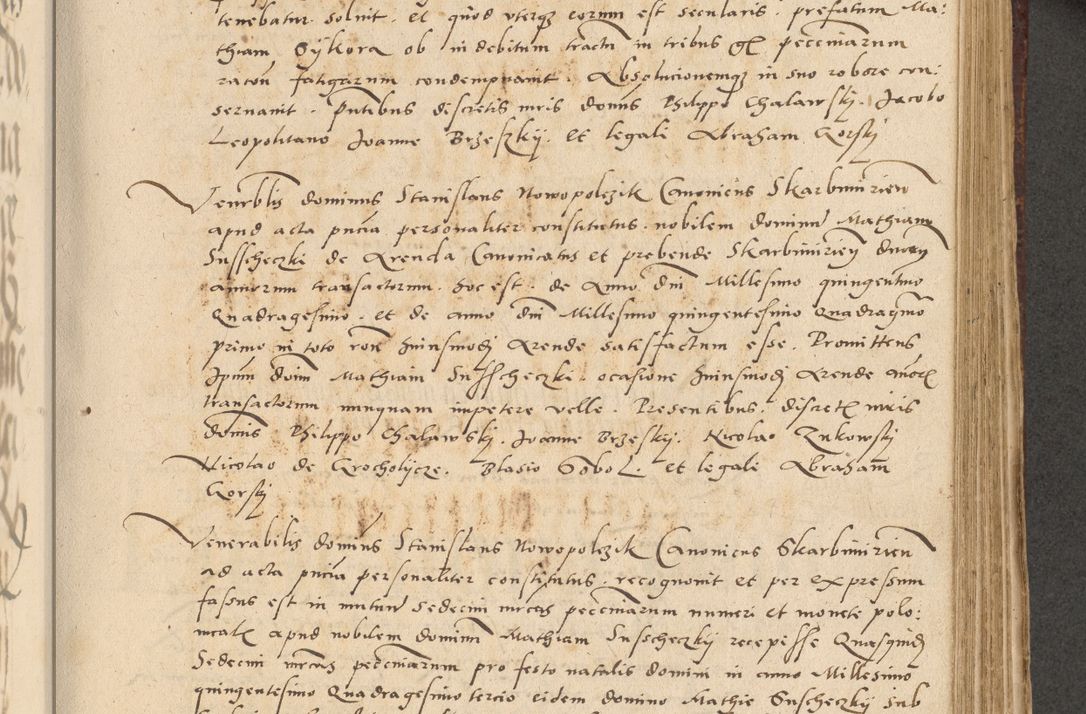 tenebatur soluit. et quod uterque eorum est secularis. prefatum Ma:
thiam Sykora ob indebitum tractu in tribus gr pecuniarum
racon fatigarum condempnauit. Absolucionemq in suo robore con:
seruauit. Pntibus discretis uiris domis Philippo Chalawsky. Jacobo
Leopolitano Joanne Brzesky. et legali Abraham Gorsky
Venerblis dominus Stanislaus Nowopolczik Canonicus Skarbimirien
apud acta pncia personaliter constitutus. nobilem dominu Mathiam
Susscheczki de Arenda Canonicatus et prebende Skarbimirien duory
annorum transactorum. hoc est. de Anno dni Millesimo quingentmo
Quadragesimo. et de anno dni Millesimo quingentesimo Quadragmo
primo in toto rone huiusmodj Arende satisfactum esse. Promittens
Ipum doim Mathiam Susscheczki. ocasione huiusmodj Arende annor
transactorum nunquam impetere velle. Presentibus. discret uiris
domis Philippo Chalawskj. Joanne Brzeskj. Nicolao Zukowskj
Nicolao de Grocholycze. Blasio Sobol. et legali Abraham
Gorskj
Venerabilis dominus Stanislaus Nowopolczik Canonicus Skarbimirien
ad acta pncia personaliter constitutus. recognouit et per expressum
fassus est in mutuu sedecim mrcas pecuniarum numeri et monete polo:
nicalj apud nobilem dominu Mathiam Susscheczkj recepisse Quasquidj
Sedecim mrcas pecuniarum pro festo natalis domini in anno Millesimo
quingentesimo Quadragesimo tercio eidem domino Mathie Suscheczkj sub